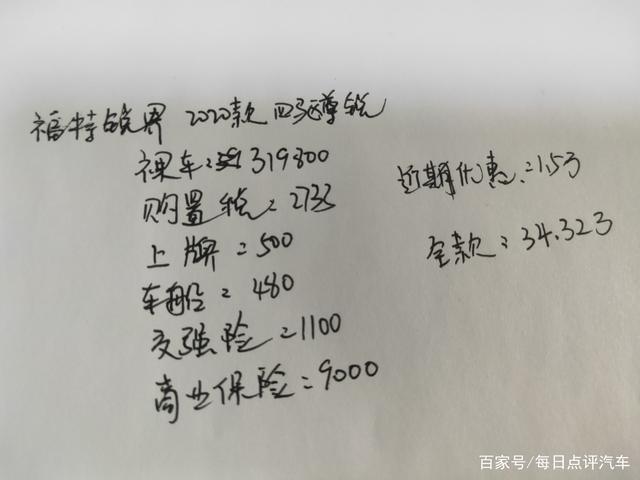 福特锐界 2020款 四驱尊锐
裸车：319800
购置税=2733
上牌=500
车船=480
交强险=1100
商业保险=9000
近期优惠=1.53
全款：34.323
百家号/每日点评汽车